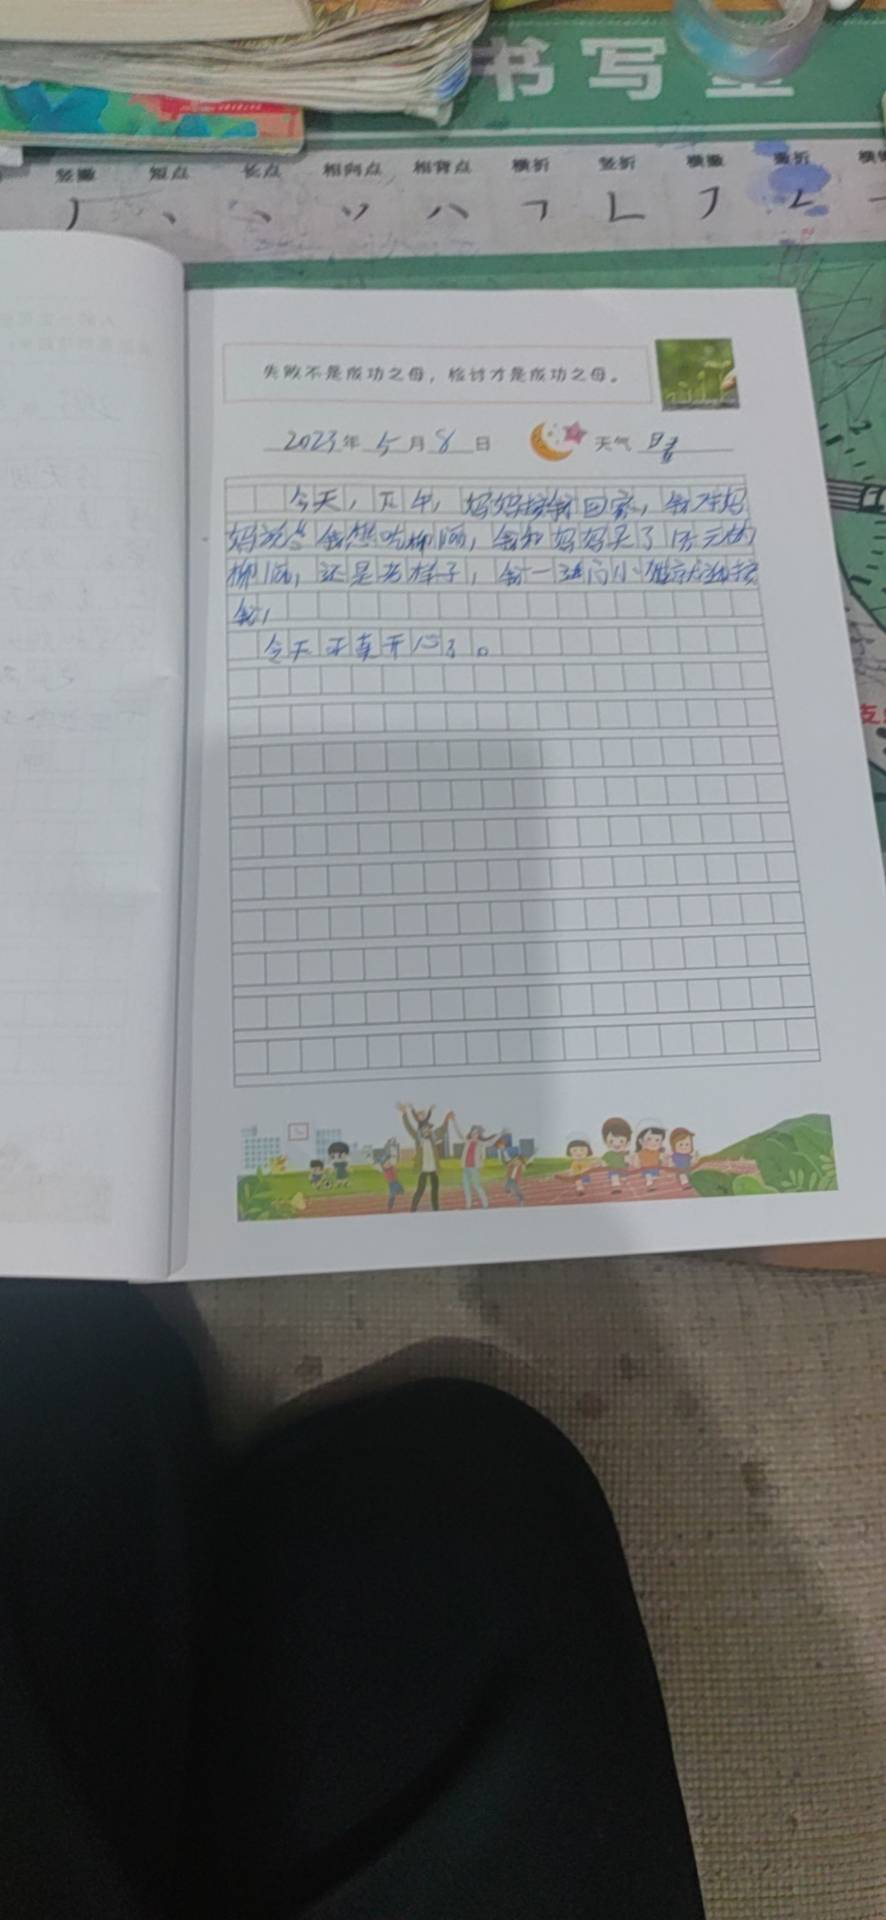 书写垫
竖撇 短点 长点 相向点 相背点 横折 竖折 横撇 撇折
失败不是成功之母，检讨才是成功之母。
2023年 5月 8日 天气 晴
今天，下午，妈妈接我回家，我对妈
妈说：我想吃柳 ，我和妈妈买了 元的
柳 ，还是老样子，我一进门小 就 接
我，
今天 真开心了。